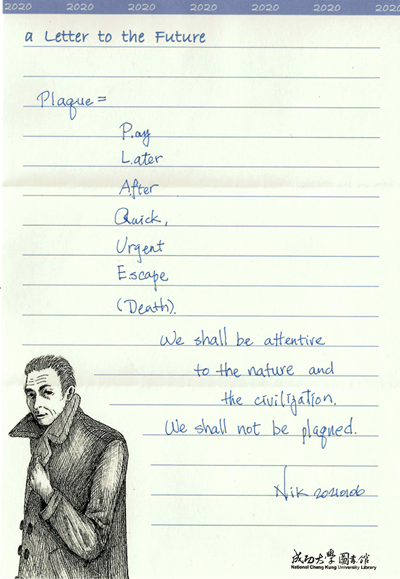 2020 2020 2020 2020 2020 2020 2020
a Letter to the Future
Plaque =
Pay
Later
After
Quick,
Urgent
Escape
(Death).
We shall be attentive
to the nature and
the civilization.
We shall not be plaqued.
Nik 20210106
成功大學圖書館
National Cheng Kung University Library